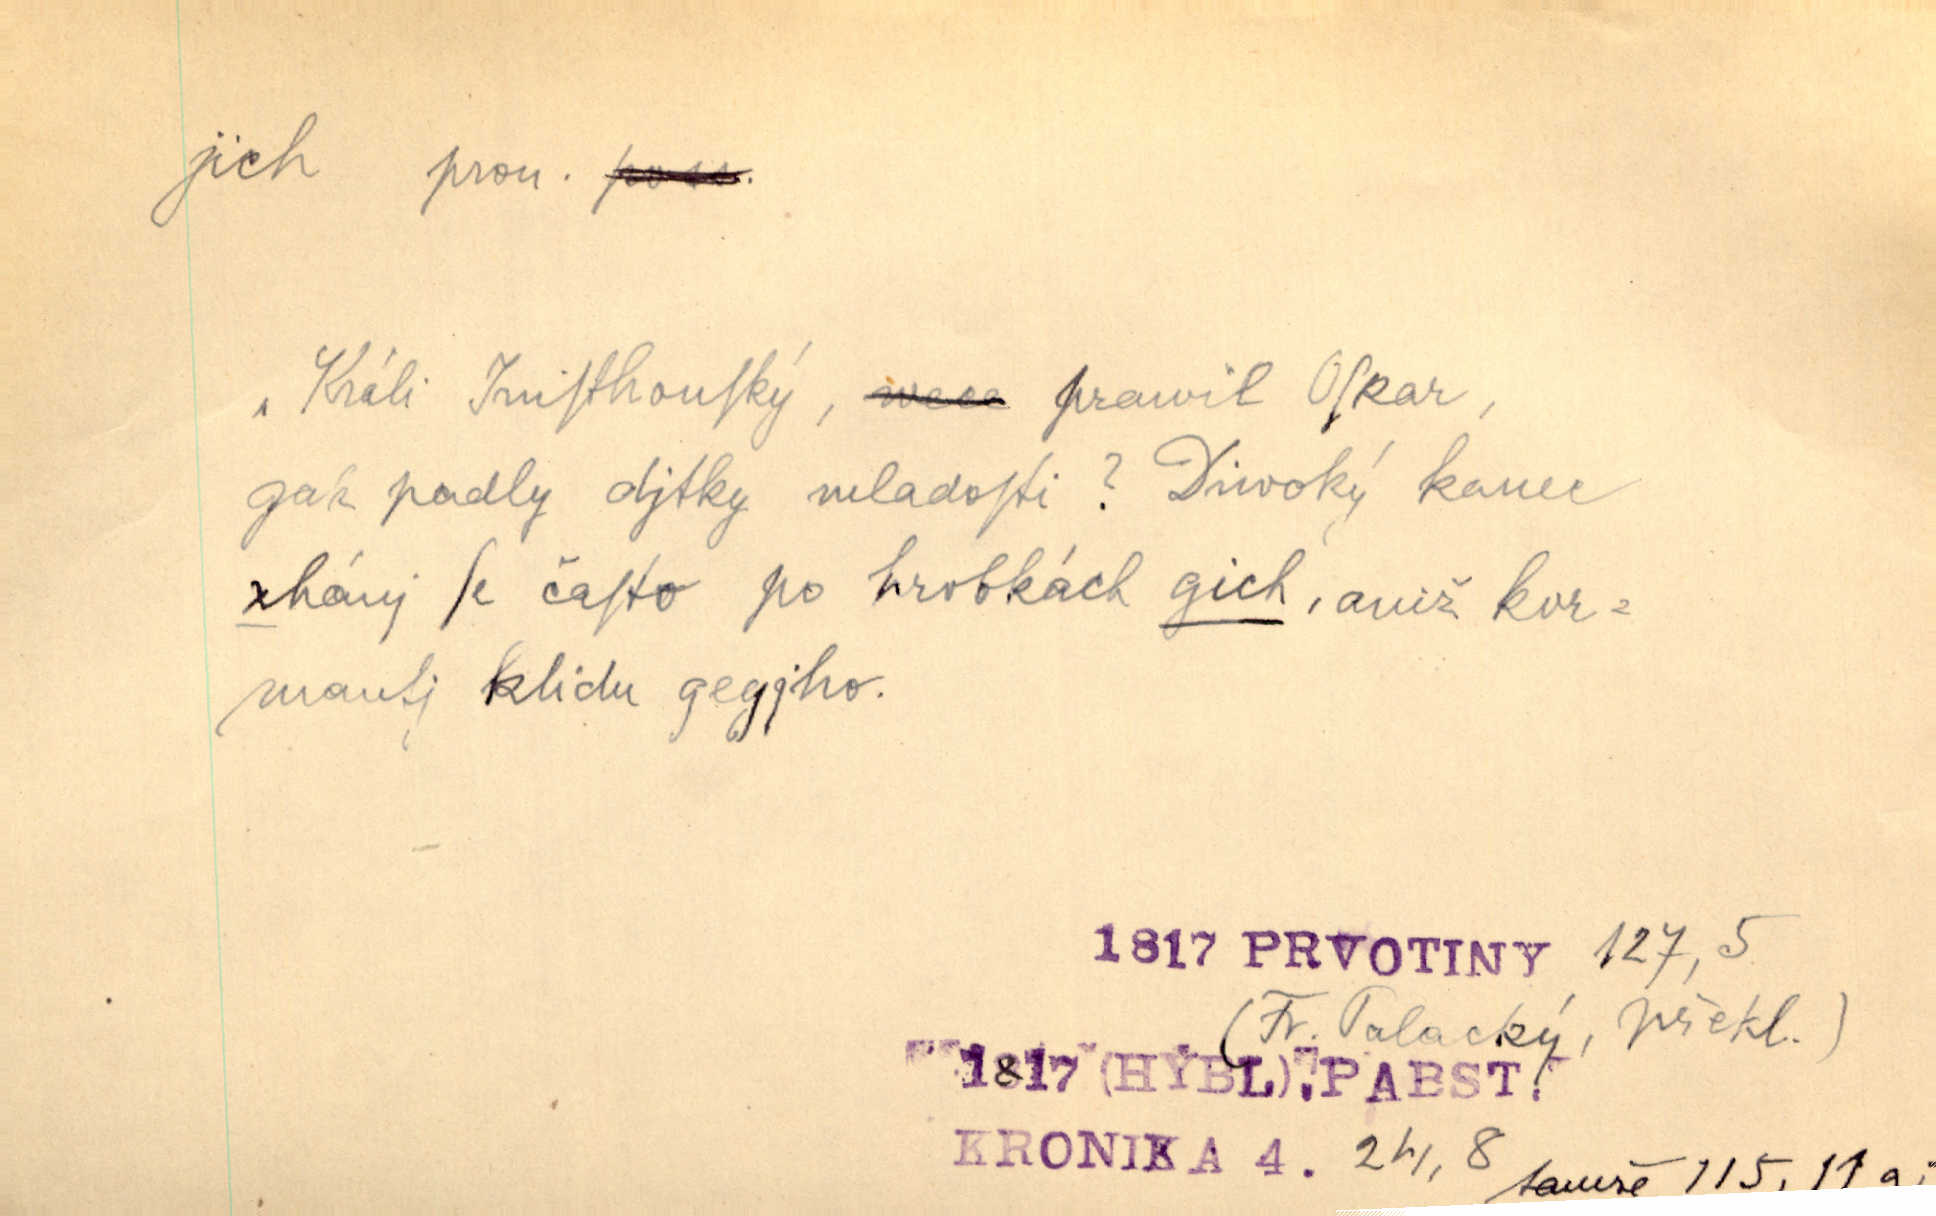 jich pron. poss.
„Králi Inisthonský, wece prawil Oskar,
gak padly djtky mladosti? Diwoký kanec
zhánj se často po hrobkách gich, aniž kor=
mautj klidu gegjho.
1817 PRVOTINY 127,5
(Fr. Palacký, překl.)
1817 (HÝBL), PABST.
KRONIKA 4. 24, 8
tamže 115, 11 a j